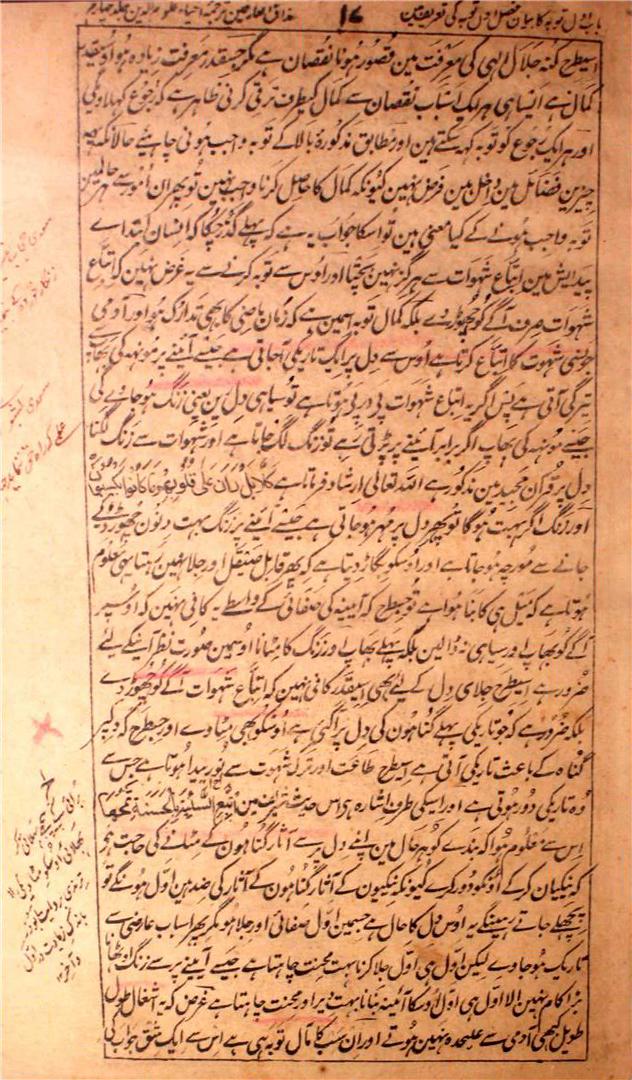 باب اول توبہ کا بیان فصل اول توبہ کی تعریف
۱۷
مذاق العارفین ترجمہ احیاء علوم الدین جلد چہارم
اسیطرح کنہ جلال الٰہی کی معرفت مین قصور ہونا نقصان ہے مگر جسقدر معرفت زیادہ ہو اوسیقدر
کمال ہے ایسا ہی ہر ایک اسباب نقصان سے کمال کیطرف ترقی کرنی ظاہر ہے کہ رجوع کہلاویگی
اور ہر ایک رجوع کو توبہ کہہ سکتے ہین اور مطابق مذکورۂ بالا کے توبہ واجب ہونی چاہیئے حالانکہ یہ
چیزین فضائل مین داخل ہین فرض نہین کیونکہ کمال کا حاصل کرنا واجب نہین تو پھر ان امور سے ہر حال مین
توبہ واجب ہونے کے کیا معنی ہین تو اسکا جواب یہ ہے کہ پہلے گذر چکا کہ انسان ابتداے
پیدایش مین اتباع شہوات سے ہرگز نہین بچتا اور اوس سے توبہ کرنے سے یہ غرض نہین کہ اتباع
شہوات صرف آگے کو چھوڑ دے بلکہ کمال توبہ اسمین ہے کہ زمان ماضی کا بھی تدارک ہو اور آدمی
جونسی شہوت کا اتباع کرتا ہے اوس سے دل پر ایک تاریکی آجاتی ہے جیسے آئینے پر مونہہ کی بھاپ سے
تیرگی آتی ہے پس اگر یہ اتباع شہوات پی درپی ہوتا ہے تو سیاہی دل رین یعنی زنگ ہو جاوے گی
جیسے مونہہ کی بھاپ اگر برابر آئینے پر پڑتی رہے تو زنگ لگ جاتا ہے اور شہوات سے زنگ لگنا
دل پر قرآن مجید مین مذکور ہے اللہ تعالی ارشاد فرماتا ہے كَلَّا بَلْ رَانَ عَلٰى قُلُوْبِهِمْ مَا كَانُوْا يَكْسِبُوْنَ
اور زنگ اگر بہت ہوگا تو پھر دل پر مہر ہو جاتی ہے جیسے آئینے پر زنگ بہت دنون چھوڑ دیے
جانے سے مورچہ ہو جاتا ہے اور اوسکو بگاڑ دیتا ہے کہ پھر قابل صیقل اور جلا نہین رہتا یہی معلوم
ہوتا ہے کہ میل ہی کا بنا ہوا ہے تو جسطرح کہ آئینہ کی صفائی کے واسطے یہ کافی نہین کہ اوسپر
آگے کو بھاپ اور سیاہی نہ ڈالین بلکہ پہلے بھاپ اور زنگ کا مٹانا اوسمین صورت نظر آنیکے لیئے
ضرور ہے اسیطرح جلای دل کے لیئے بھی اسیقدر کافی نہین کہ اتباع شہوات آگے کو چھوڑ دے
بلکہ ضرور ہے کہ جو تاریکی پہلے گناہون کی دل پر آگئی ہے اوسکو بھی مٹاوے اور جسطرح کہ دلپر
گناہ کے باعث تاریکی آتی ہے اسیطرح طاعت اور ترک شہوت سے نور پیدا ہوتا ہے جس سے
وہ تاریکی دور ہوتی ہے اور اسیکی طرف اشارہ ہی اس حدیث شریف مین اَتْبِعِ السَّيِّئَةَ بِالْحَسَنَةِ تَمْحُهَا
اس سے معلوم ہوا کہ بندے کو ہر حال مین اپنے دل سے آثار گناہون کے مٹانے کی حاجت ہو
کہ نیکیان کرکے اونکو دور کرے کیونکہ نیکیون کے آثار گناہون کے آثار کی ضد ہین اول ہونگے تو
پچھلے جاتے رہینگے یہ اوس دل کا حال ہے جسمین اول صفائی اور جلا ہو مگر پھر اسباب عارضی سے
تاریک ہو جاوے لیکن اول ہی اول جلا کرنا بہت محنت چاہتا ہے جیسے آئینے پر سے زنگ اوٹھانا
بڑا کام نہین الا اول ہی اول اوسکا آئینہ بنانا بہت دیر اور محنت چاہتا ہے غرض کہ یہ اشغال طول
طویل کبھی آدمی سے علیحدہ نہین ہوتے اور ان سب کا مآل توبہ ہی ہے اس سے ایک شق جواب کی